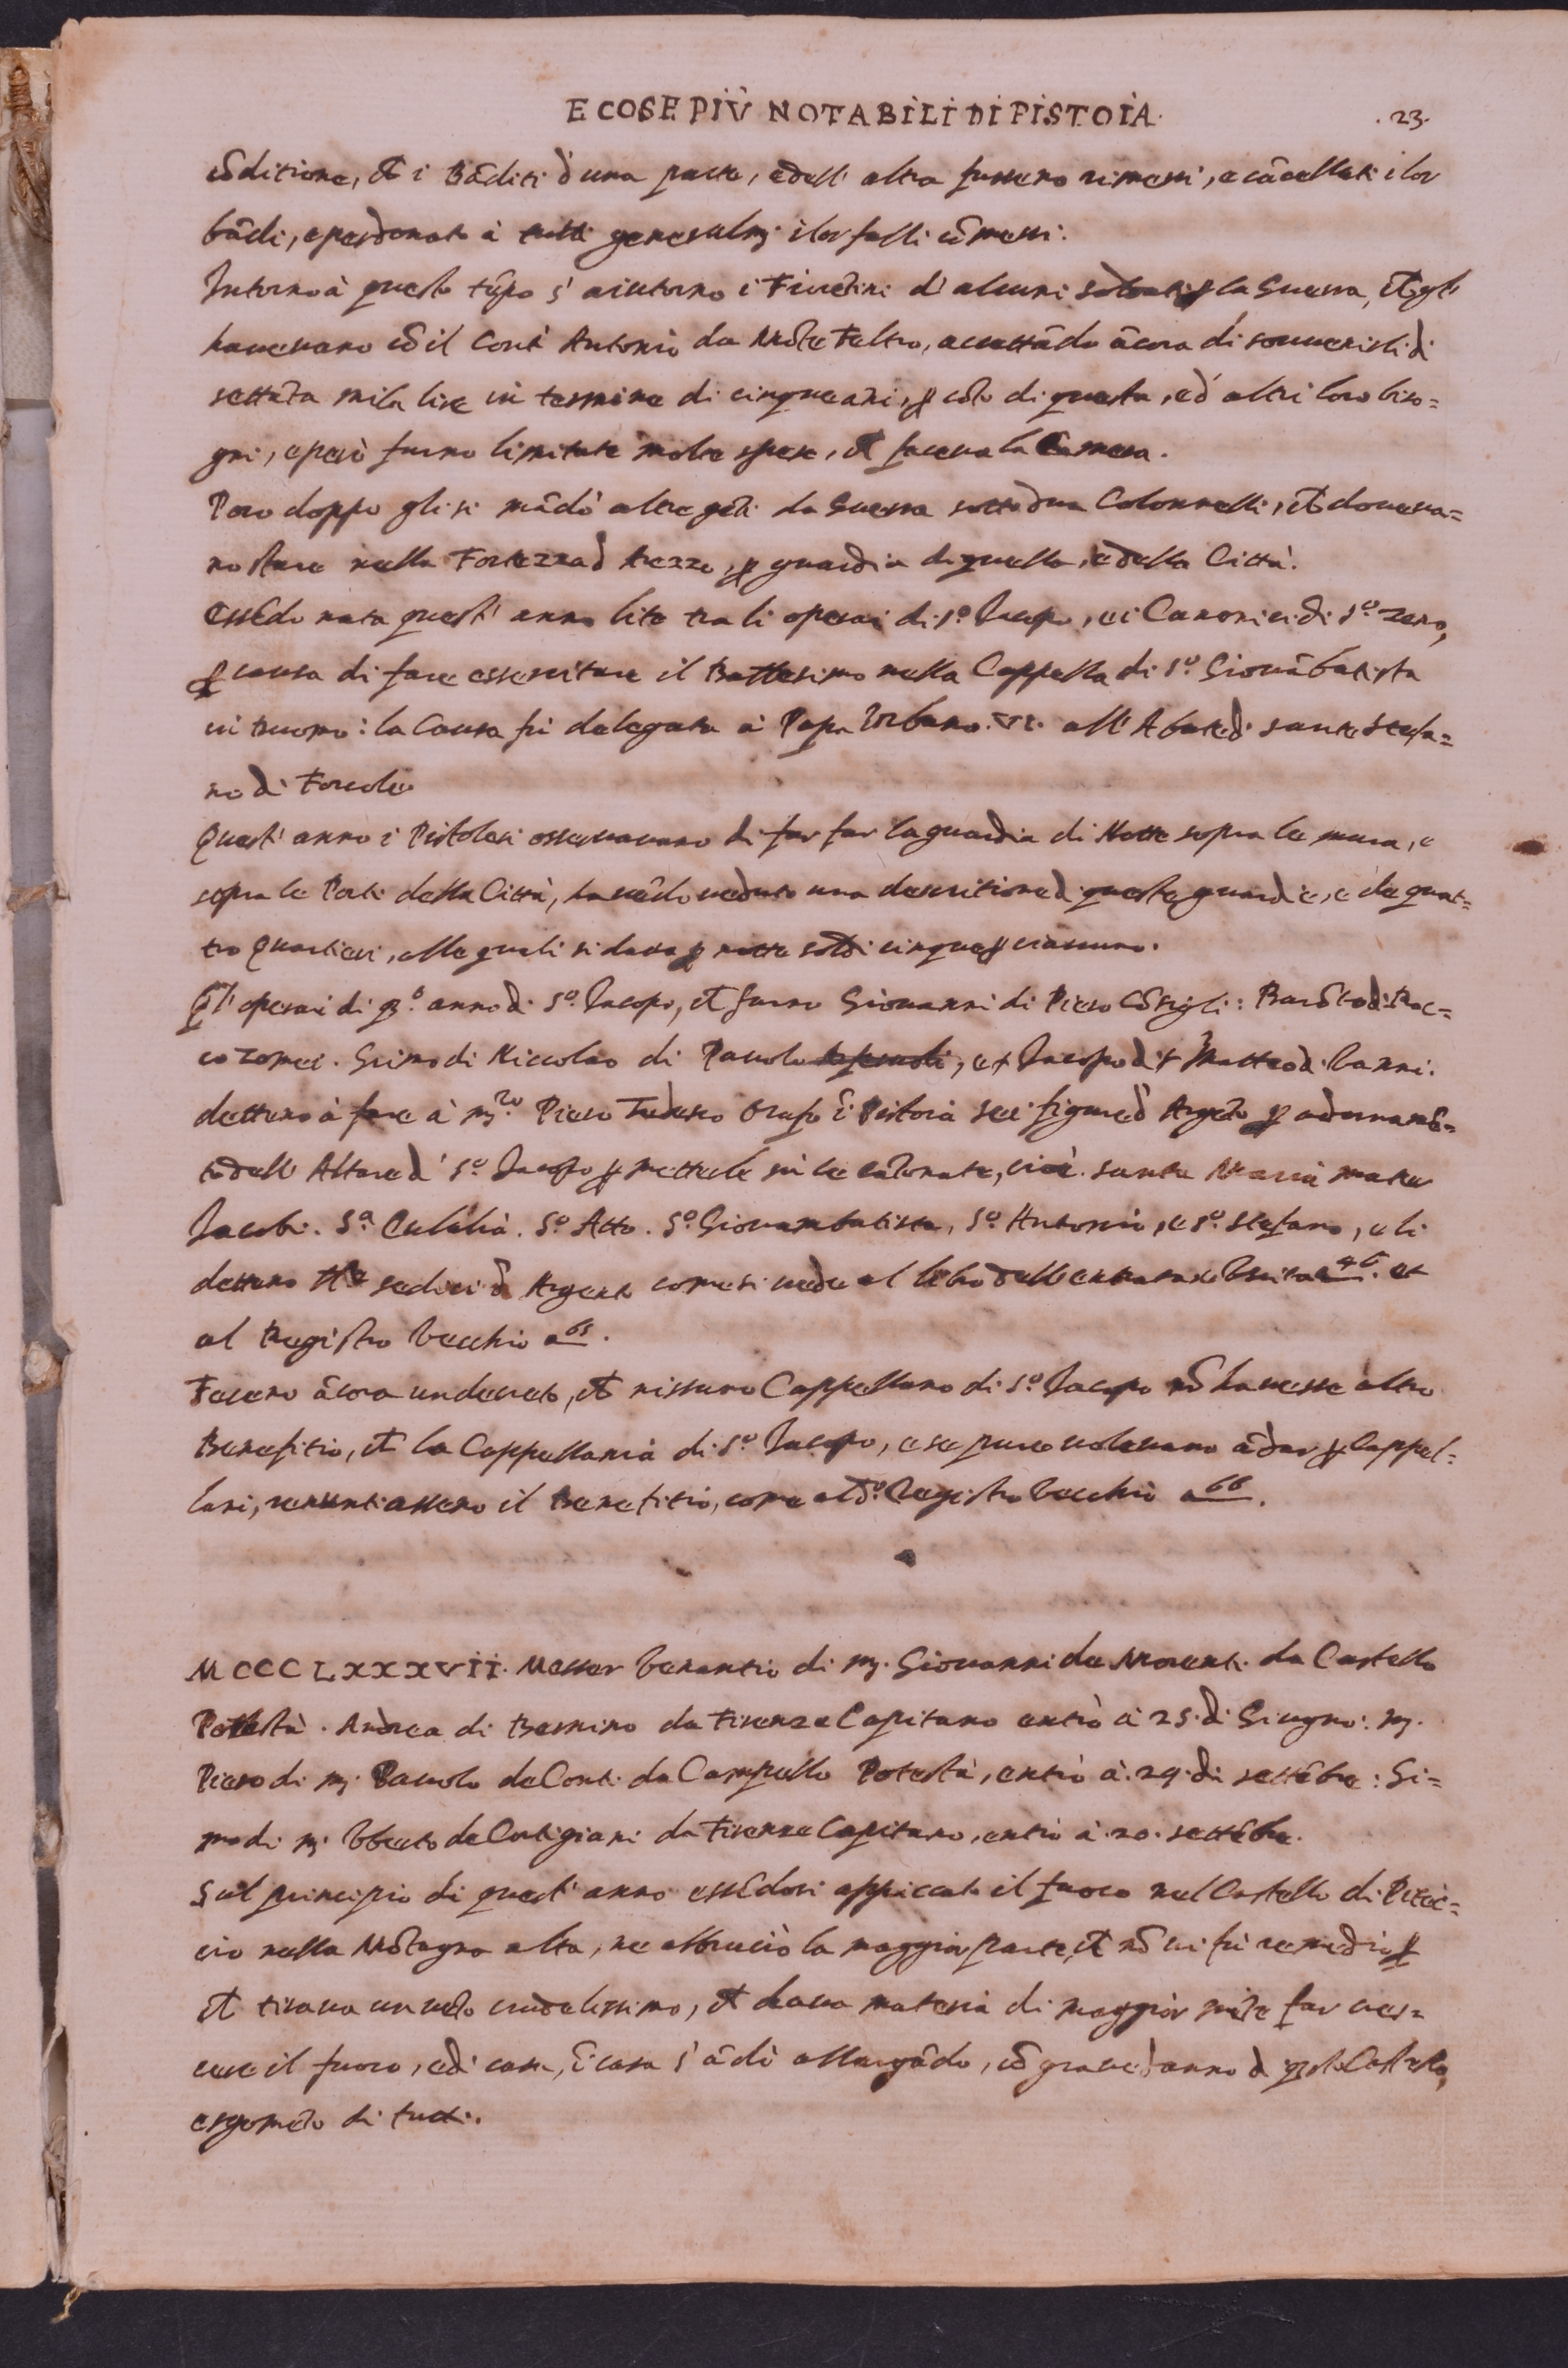 E COSE PIÙ NOTABILI DI PISTOIA. .23.
cōditione, ch̄ i Bāditi d'una parte, e dell' altra fussero rimessi, e cācellati i lor
bādi, e perdonato à tutti generalm̃. i lor falli cōmessi.
Intorno à questo tēpo s' aiutorno i Fiorētini d' alcuni soldati ꝑ la Guerra, ch̄ gli
haueuano cō il Conte Antonio da Mōte Feltro, accettādo ācora di souuenirli di
settāta mila lire in termine di cinque āni, ꝑ cōto di questa, ed' altri loro biso=
gni, e però furno limitate molte spese, ch̄ faceua la Camera.
Poco doppo gli si mādò altre gēti da Guerra sotto dua Colonnelli, ch̄ doueua=
no stare nella Fortezza d Arezzo, ꝑ guardia di quella, e della Città.
Essēdo nata quest' anno lite tra li operai di S.o Iacopo, e i Canonici di S.o Zeno,
ꝑ causa di fare essercitare il Battesimo nella Cappella di S.o Giouābatista
in Duomo: la Causa fù delegata à Papa Vrbano .VI. all' Abate di sante Stefa=
no di Forcole.
Quest' anno i Pistolesi osseruauano di far far la guardia di Notte sopra le mura, e
sopra le Porti della Città, hauēdo ueduto una descritione di queste guardie, e de quat=
tro Quartieri, alle quali si daua ꝑ notte soldi cinque ꝑ ciascuno.
Gl' operai di q̄sto anno di S.o Iacopo, ch̄ furno Giouanni di Piero Cōsigli: Barōto di Bac=
co Tomei. Grimo di Niccolao di Pauolo, et Iacopo di Matteo di Vanni.
dettero à fare à m.ro Piero Tedesco Orafo ī Pistoia sei figure d' Argēto ꝑ adornamē=
to dell' Altare d' S.o Iacopo ꝑ metterle sù le colonnate, cioè. santa Maria mater
Iacobi. S.a Eulalia. S.o Atto. S.o Giouambatista, S.o Antonio, e S.o Stefano, e li
dettero sedici d' Argento come si uede al libro dell entrata e Vscita a 46. et
al Registro Vecchio a 65.
Fecero ācora un decreto, ch̄ nissuno Cappellano di S.o Iacopo nō hauesse altro
Benefitio, ch̄ la Cappellania di S.o Iacopo, e se pure uoleuano ādar ꝑ Cappel=
lani, renuntiassero il Benefitio, come al d.o Registro Vecchio a 66.
MCCCLXXXVII. Messer Venantio di m̃. Giouanni de Morenti da Castello
Potestà. Andrea di Bernino da Firenze Capitano entrò à 25. di Giugno: m̃.
Piero di m̃. Pauolo de Conti da Campello Potestà, entrò à .29. di settēbre: Si=
mo di m̃. Vberto de Cortigiani da Firenze Capitano, entrò à .20. settēbre.
Sul principio di quest' anno essēdosi appiccato il fuoco nel Castello di Pitec=
cio nella Mōtagna alta, ne abbruciò la maggior parte, ch̄ nō ui fù remedio ꝑ
ch̄ tiraua un uēto crudelissimo, ch̄ daua materia di maggior mēte far cres=
cere il fuoco, e di casa, ī casa s' ādò allargādo, cō graue danno d q̄sto Castello,
e spauēto di tutti.